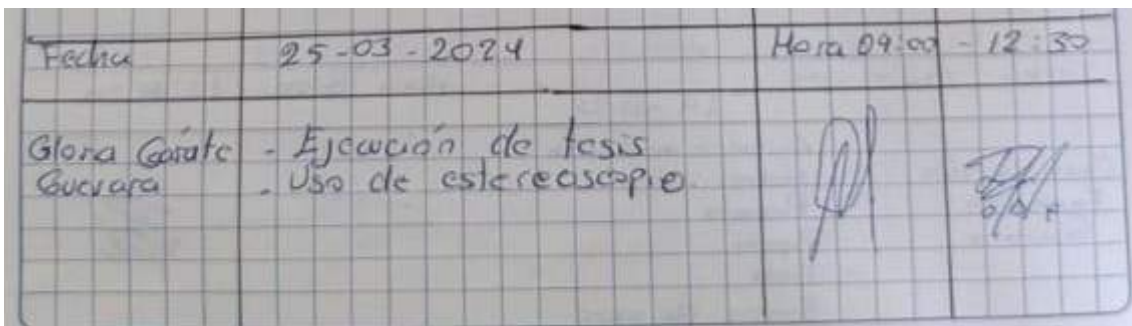 Fecha 25-03-2024 Hora 09:00 - 12:30
Gloria Gárate - Ejecución de tesis
Guevara - Uso de estereoscopio